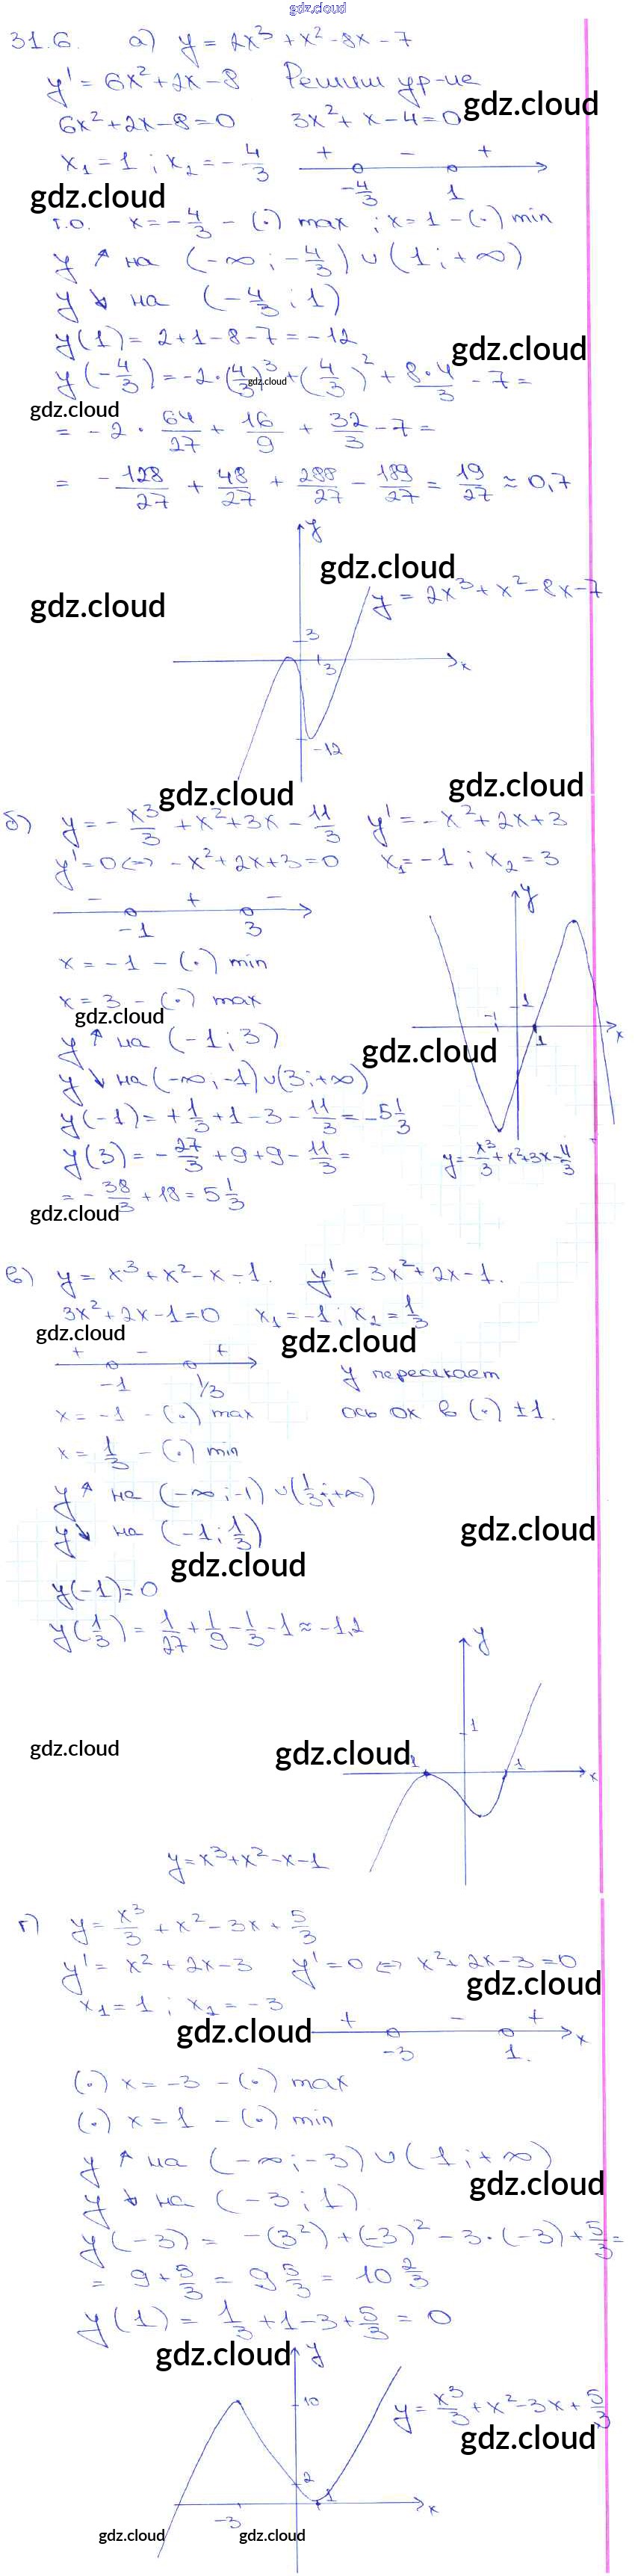 gdz.cloud
31.6. а) y = 2x³ + x² - 8x - 7
y' = 6x² + 2x - 8 Решим ур-ие
gdz.cloud
6x² + 2x - 8 = 0 3x² + x - 4 = 0
x₁ = 1 ; x₂ = - 4/3
+ - +
-4/3 1
gdz.cloud
т.о. x = - 4/3 - (·) max ; x = 1 - (·) min
y ↑ на (-∞ ; -4/3) ∪ (1 ; +∞)
y ↓ на (-4/3 ; 1)
y(1) = 2 + 1 - 8 - 7 = -12
gdz.cloud
y(-4/3) = -2·(4/3)³ + (4/3)² + 8·4/3 - 7 =
gdz.cloud
gdz.cloud
= -2 · 64/27 + 16/9 + 32/3 - 7 =
= - 128/27 + 48/27 + 288/27 - 189/27 = 19/27 ≈ 0,7
y
gdz.cloud
gdz.cloud
y = 2x³ + x² - 8x - 7
3
3
x
-12
gdz.cloud
gdz.cloud
б) y = - x³/3 + x² + 3x - 11/3 y' = -x² + 2x + 3
y' = 0 <=> -x² + 2x + 3 = 0 x₁ = -1 ; x₂ = 3
- + -
-1 3
y
x = -1 - (·) min
x = 3 - (·) max
gdz.cloud
-1
1
1
x
y ↑ на (-1 ; 3)
gdz.cloud
y ↓ на (-∞ ; -1) ∪ (3 ; +∞)
y(-1) = + 1/3 + 1 - 3 - 11/3 = -5 1/3
y(3) = - 27/3 + 9 + 9 - 11/3 =
y = - x³/3 + x² + 3x - 11/3
= - 38/3 + 18 = 5 1/3
gdz.cloud
в) y = x³ + x² - x - 1. y' = 3x² + 2x - 1.
3x² + 2x - 1 = 0 x₁ = -1 ; x₂ = 1/3
gdz.cloud
gdz.cloud
+ - +
-1 1/3
y пересекает
ось OX в (·) ±1.
x = -1 - (·) max
x = 1/3 - (·) min
y ↑ на (-∞ ; -1) ∪ (1/3 ; +∞)
y ↓ на (-1 ; 1/3)
gdz.cloud
gdz.cloud
y(-1) = 0
y(1/3) = 1/27 + 1/9 - 1/3 - 1 ≈ -1,2
y
1
gdz.cloud
gdz.cloud
1
1
x
y = x³ + x² - x - 1
г) y = x³/3 + x² - 3x + 5/3
y' = x² + 2x - 3 y' = 0 <=> x² + 2x - 3 = 0
gdz.cloud
x₁ = 1 ; x₂ = -3
gdz.cloud
+ - +
-3 1. x
(·) x = -3 - (·) max
(·) x = 1 - (·) min
y ↑ на (-∞ ; -3) ∪ (1 ; +∞)
gdz.cloud
y ↓ на (-3 ; 1)
y(-3) = -(3²) + (-3)² - 3·(-3) + 5/3 =
= 9 + 5/3 = 9 5/3 = 10 2/3
y(1) = 1/3 + 1 - 3 + 5/3 = 0
gdz.cloud
y
10
y = x³/3 + x² - 3x + 5/3
gdz.cloud
2
1
-3
x
gdz.cloud
gdz.cloud